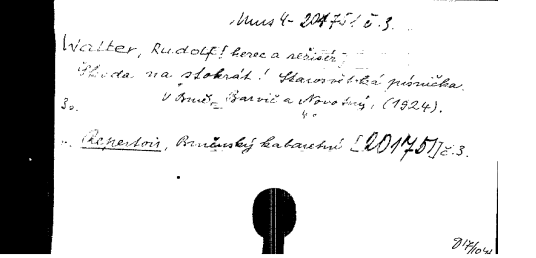 Mus 4 - 20175! č. 3.
Walter, Rudolf! herec a režisér
Škoda na stokrát! Starosvětská písnička.
V Brně, Barvič a Novotný, (1924).
3 s. 4°
Repertoir, Brněnský kabaretní [20175] č. 3.